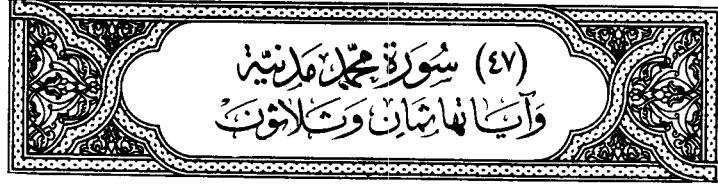 (٤٧) سُورَةِ مُحَمَّدٍ مَدَنِيَّة
وَآيَاتها ثَمَان وَثَلَاثُونَ